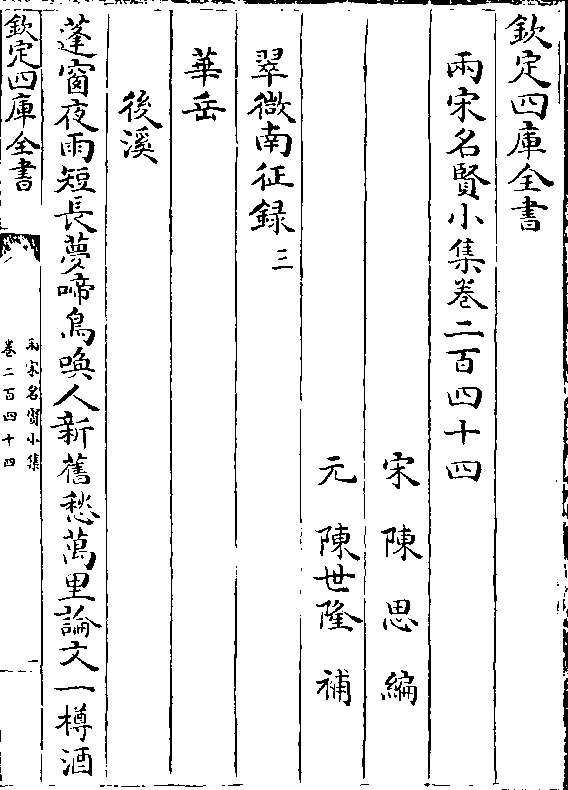 欽定四庫全書
兩宋名賢小集卷二百四十四
宋 陳思 編
元 陳世隆 補
翠微南征錄 三
華岳
後溪
蓬窗夜雨短長夢啼鳥喚人新舊愁萬里論文一樽酒
欽定四庫全書
兩宋名賢小集
卷二百四十四